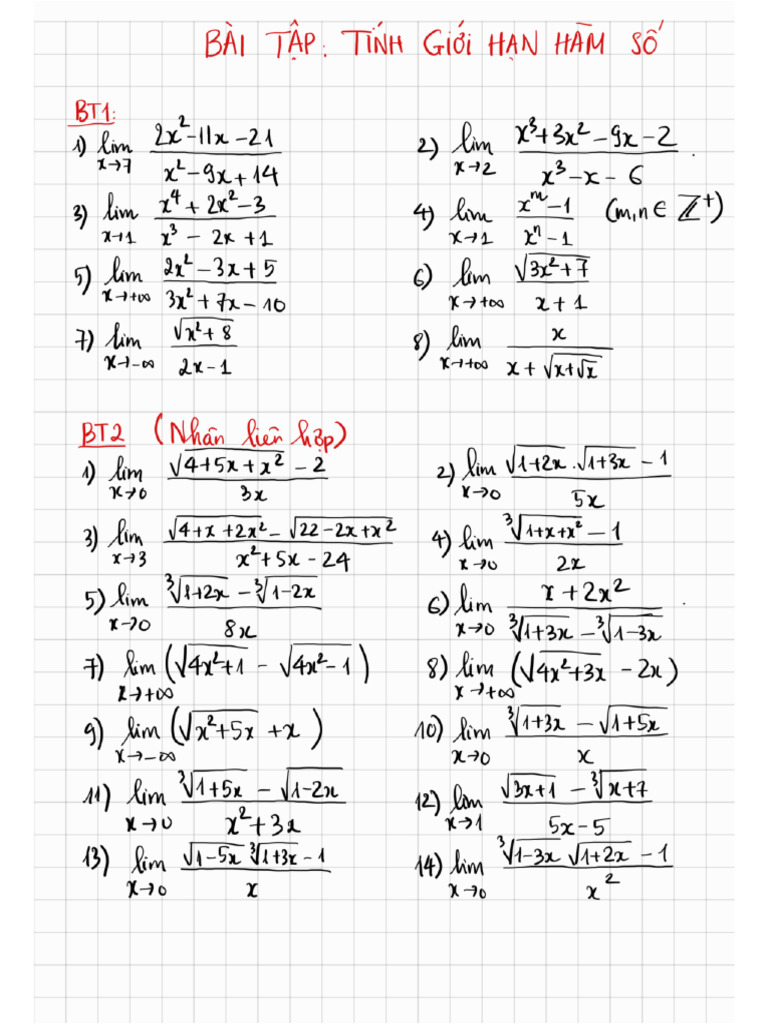 BÀI TẬP: TÍNH GIỚI HẠN HÀM SỐ
BT1:
1) lim_{x→7} (2x²-11x-21)/(x²-9x+14)
2) lim_{x→2} (x³+3x²-9x-2)/(x³-x-6).
3) lim_{x→1} (x⁴+2x²-3)/(x³-2x+1)
4) lim_{x→1} (x^m-1)/(x^n-1) (m,n∈ℤ⁺)
5) lim_{x→+∞} (2x²-3x+5)/(3x²+7x-10)
6) lim_{x→+∞} √(3x²+7)/(x+1)
7) lim_{x→-∞} √(x²+8)/(2x-1)
8) lim_{x→+∞} x/(x+√(x+√x))
BT2 (Nhân liên hợp)
1) lim_{x→0} (√(4+5x+x²)-2)/(3x)
2) lim_{x→0} (√(1+2x).√(1+3x)-1)/(5x)
3) lim_{x→3} (√(4+x+2x²)-√(22-2x+x²))/(x²+5x-24)
4) lim_{x→0} (∛(1+x+x²)-1)/(2x)
5) lim_{x→0} (∛(1+2x)-∛(1-2x))/(8x)
6) lim_{x→0} (x+2x²)/(∛(1+3x)-∛(1-3x))
7) lim_{x→+∞} (√(4x²+1)-√(4x²-1))
8) lim_{x→+∞} (√(4x²+3x)-2x)
9) lim_{x→-∞} (√(x²+5x)+x)
10) lim_{x→0} (∛(1+3x)-√(1+5x))/x
11) lim_{x→0} (∛(1+5x)-√(1-2x))/(x²+3x)
12) lim_{x→1} (√(3x+1)-∛(x+7))/(5x-5)
13) lim_{x→0} (√(1-5x)∛(1+3x)-1)/x
14) lim_{x→0} (∛(1-3x)√(1+2x)-1)/x²